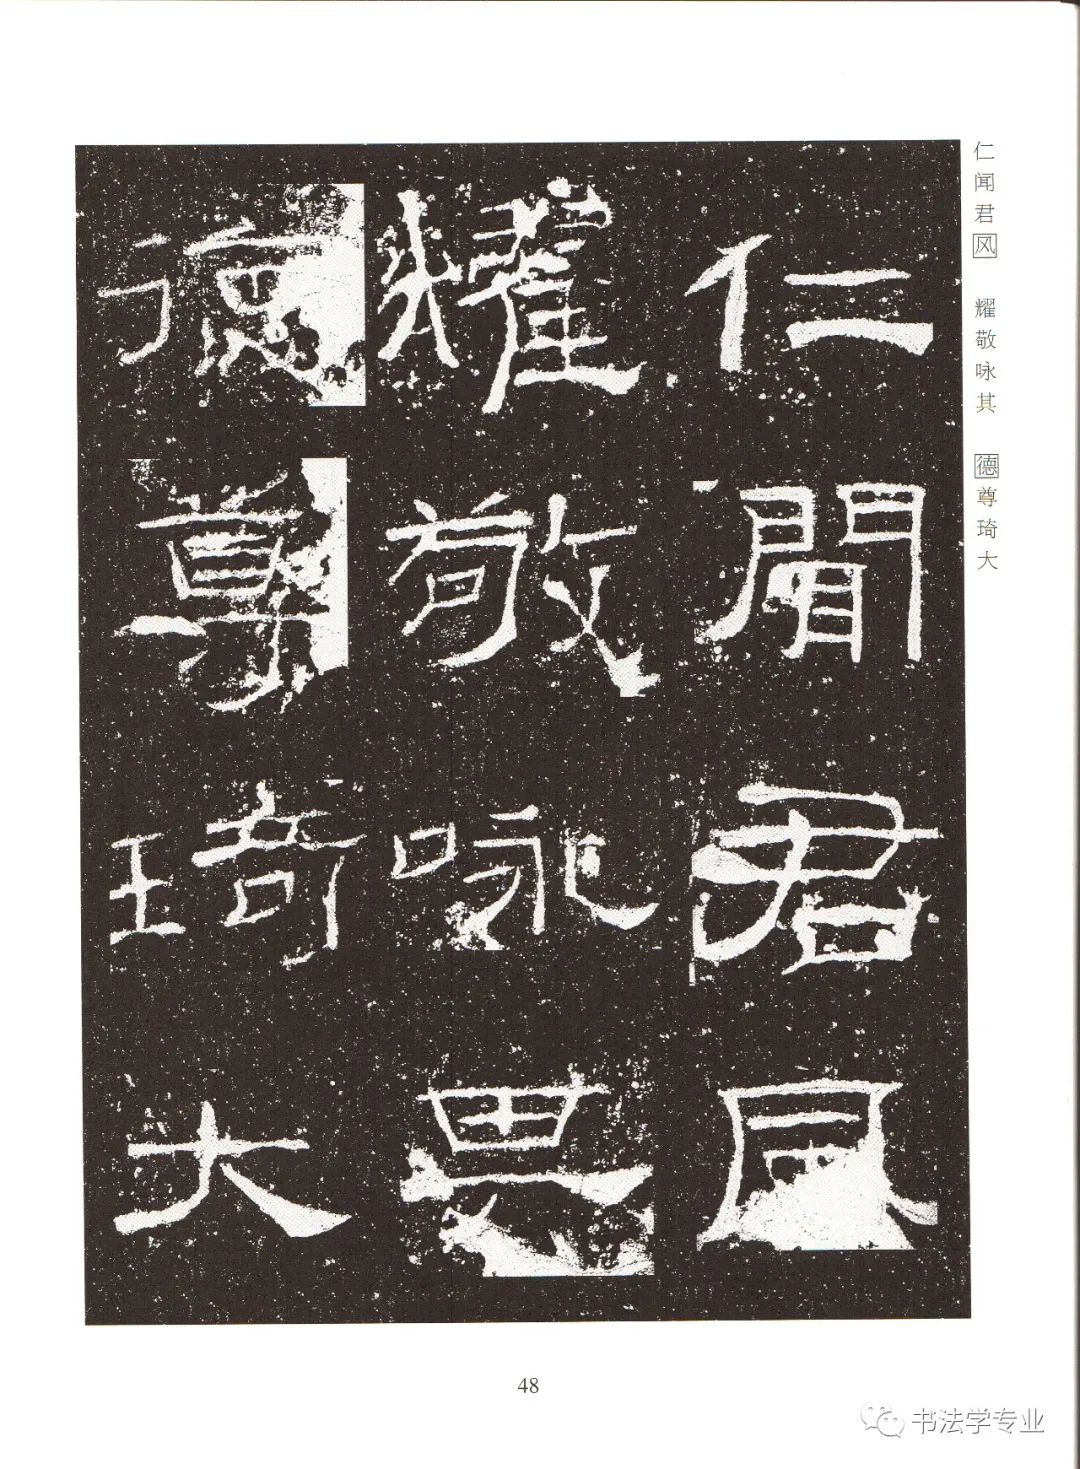 仁聞君風
耀敬咏其
德尊琦大
仁闻君风 耀敬咏其 德尊琦大
48
书法学专业